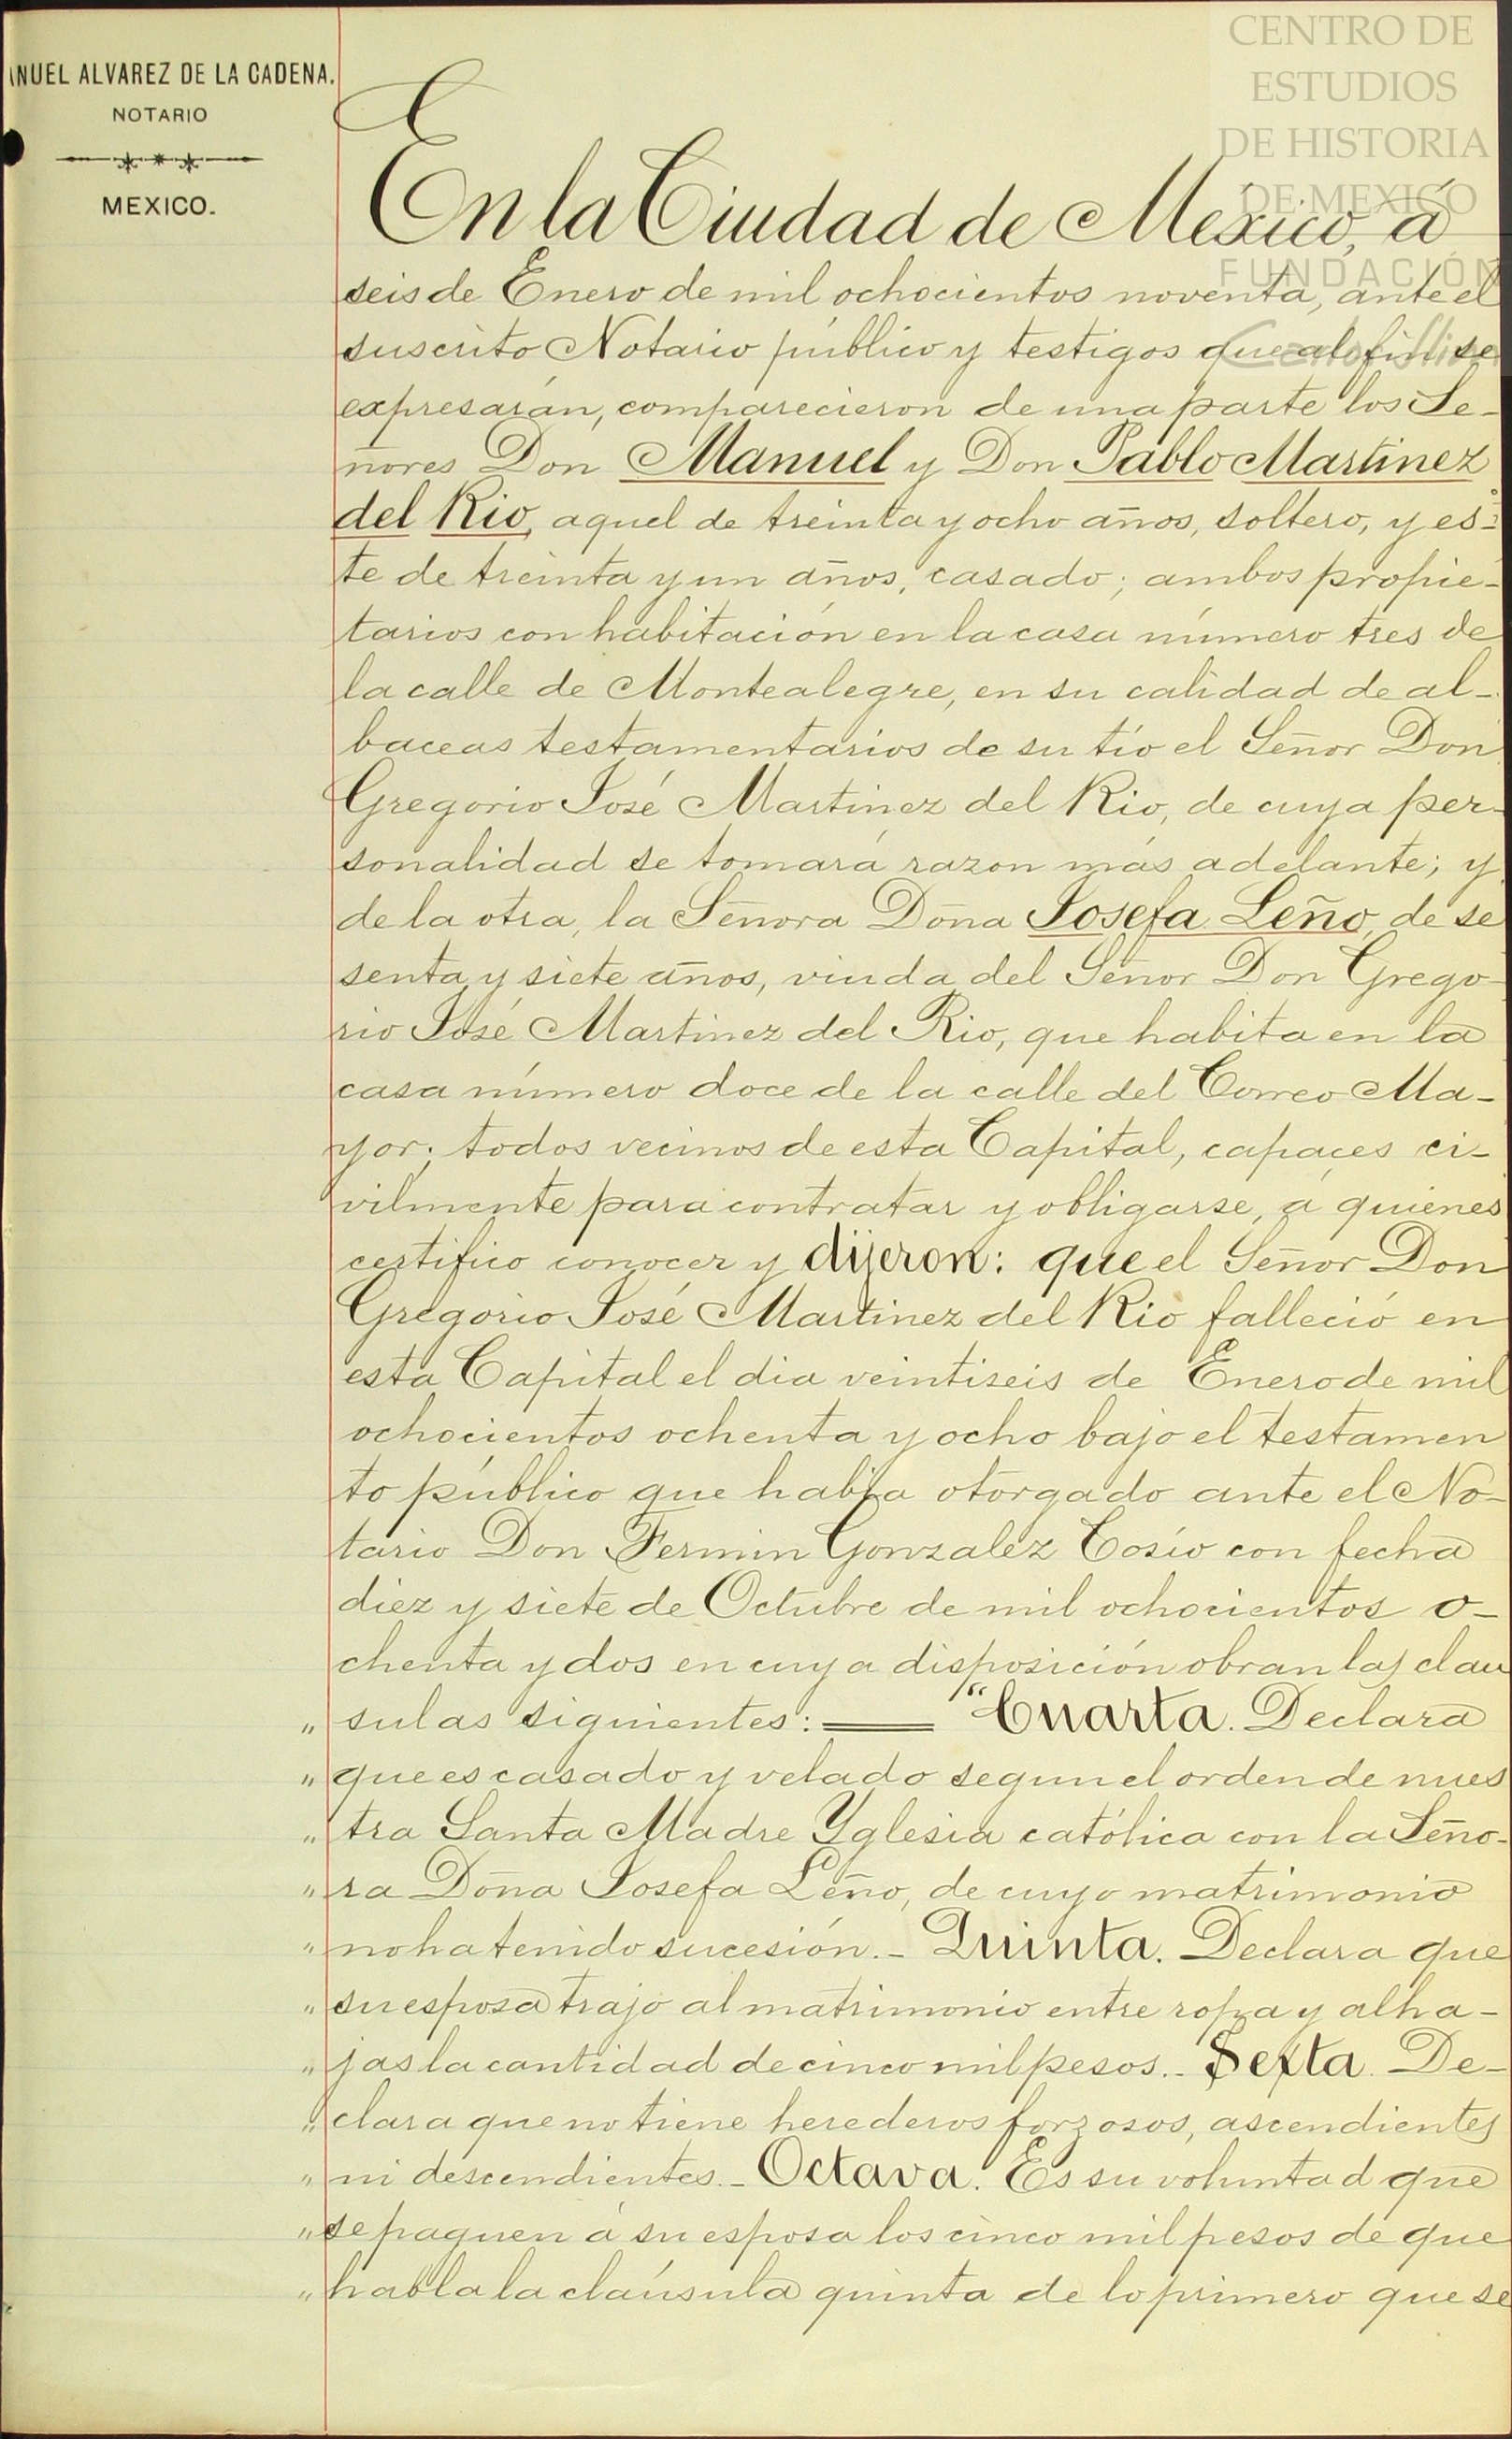 NUEL ALVAREZ DE LA CADENA.
NOTARIO
MEXICO.
CENTRO DE
ESTUDIOS
DE HISTORIA
DE MEXICO
FUNDACIÓN
En la Ciudad de Mexico, á
seis de Enero de mil ochocientos noventa, ante el
suscrito Notario público y testigos que al fin se
expresarán, comparecieron de una parte los Se-
ñores Don Manuel y Don Pablo Martinez
del Rio, aquel de treinta y ocho años, soltero, y es-
te de treinta y un años, casado; ambos propie-
tarios con habitación en la casa número tres de
la calle de Montealegre, en su calidad de al-
baceas testamentarios de su tío el Señor Don
Gregorio José Martinez del Rio, de cuya per-
sonalidad se tomará razon más adelante; y
de la otra, la Señora Doña Josefa Leño, de se
senta y siete años, viuda del Señor Don Grego-
rio José Martinez del Rio, que habita en la
casa número doce de la calle del Correo Ma-
yor; todos vecinos de esta Capital, capaces ci-
vilmente para contratar y obligarse, á quienes
certifico conocer y dijeron: que el Señor Don
Gregorio José Martinez del Rio falleció en
esta Capital el dia veintiseis de Enero de mil
ochocientos ochenta y ocho bajo el testamen
to público que habia otorgado ante el No-
tario Don Fermin Gonzalez Cosío con fecha
diez y siete de Octubre de mil ochocientos o-
chenta y dos en cuya disposición obran las clau
" sulas siguientes: "Cuarta. Declara
" que es casado y velado segun el orden de nues
" tra Santa Madre Yglesia católica con la Seño-
" ra Doña Josefa Leño, de cuyo matrimonio
" no ha tenido sucesión.- Quinta. Declara que
" su esposa trajo al matrimonio entre ropa y alha-
" jas la cantidad de cinco mil pesos.- Sexta. De-
" clara que no tiene herederos forzosos, ascendientes
" ni descendientes.- Octava. Es su voluntad que
" se paguen á su esposa los cinco mil pesos de que
" habla la claúsula quinta de lo primero que se